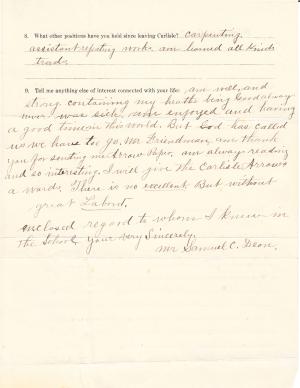 8. What other positions have you held since leaving Carlisle? Carpenting
assistant repeting works. am learned all kinds
trade.
9. Tell me anything else of interest connected with your life: am well, and
strong containing my heaths being Good always
never was sick, am enjoyed and having
a good time in this world. But God has called
us we have to go. Mr Friendman, am thank
you for sending me Arrow Paper, am always reading
and so interesting. I will give The Carlisle Arrow
a words. There is no excellent But without
great Labour.
enclosed regard to whom I knew in
the School, your very Sincerely.
Mr Samuel C. Deon.